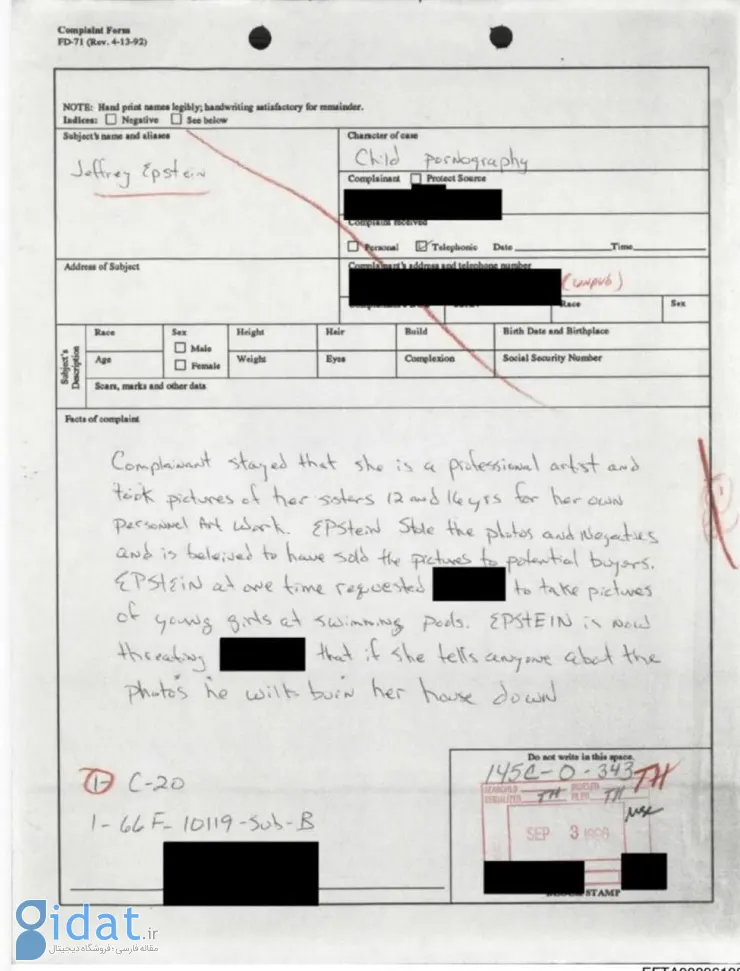 Complaint Form
FD-71 (Rev. 4-13-92)
NOTE: Hand print names legibly; handwriting satisfactory for remainder.
Indices: Negative See below
Subject's name and aliases
Jeffrey Epstein
Character of case
Child pornography
Complainant Protect Source
Complaint received
Personal Telephonic Date Time
Address of Subject
Complainant's address and telephone number
(unpub)
Race
Sex
Subject's Description
Race
Sex
Male
Female
Height
Hair
Build
Birth Date and Birthplace
Age
Weight
Eyes
Complexion
Social Security Number
Scars, marks and other data
Facts of complaint
Complainant stayed that she is a professional artist and
took pictures of her sisters 12 and 16 yrs for her own
personnel Art Work. EPStein Stole the photos and Negatives
and is beleived to have sold the pictures to potential buyers.
EPSTEIN at one time requested to take pictures
of young girls at swimming pools. EPSTEIN is now
threating that if she tells anyone about the
photos he will burn her house down
1- C-20
1-66F-10119-Sub-B
Do not write in this space.
145C-0-343
TH
SEARCHED TH INDEXED
SERIALIZED FILED TH
SEP 3 1996
STAMP
gidat.ir
مقاله فارسی؛ فروشگاه دیجیتال